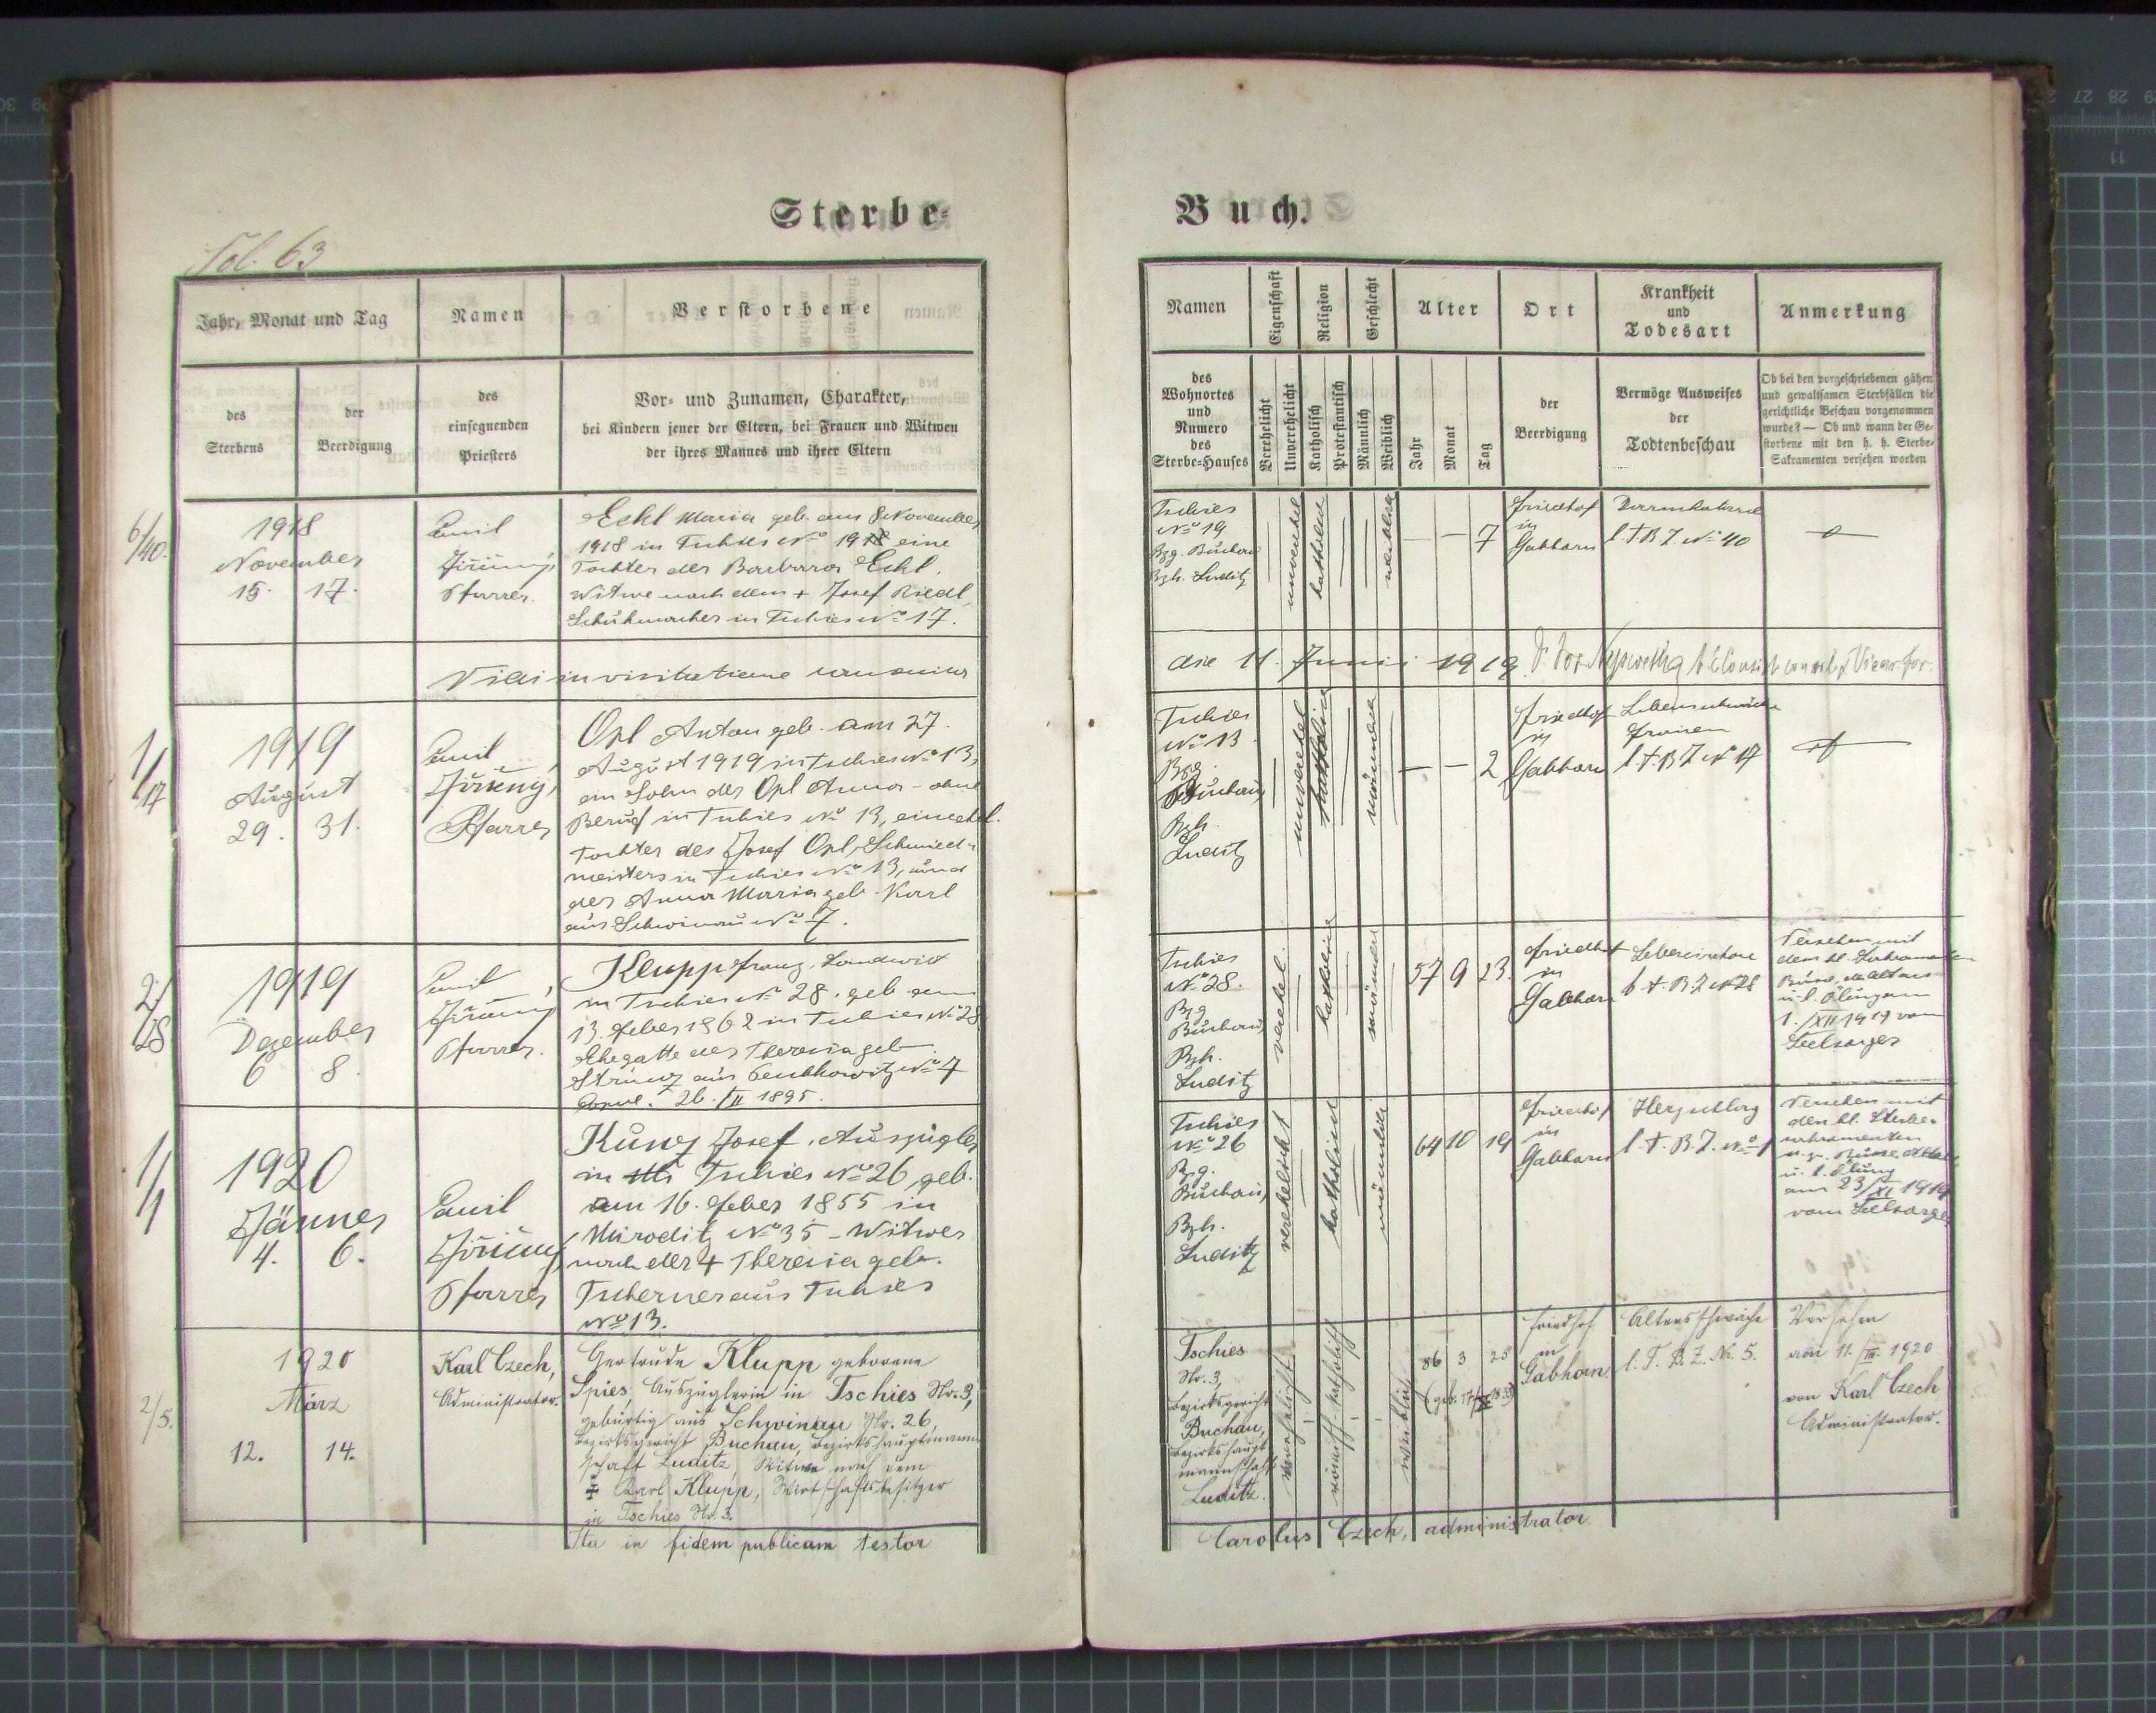 Sterbe-
Buch.
Fol. 63
Jahr, Monat und Tag
Namen
Verstorbene
des
Sterbens
der
Beerdigung
des
einsegnenden
Priesters
Vor- und Zunamen, Charakter,
bei Kindern jener der Eltern, bei Frauen und Witwen
der ihres Mannes und ihrer Eltern
Namen
Eigenschaft
Religion
Geschlecht
Alter
Ort
Krankheit
und
Todesart
Anmerkung
des
Wohnortes
und
Numero
des
Sterbe-Hauses
Verehelicht
Unverehelicht
Katholisch
Protestantisch
Männlich
Weiblich
Jahr
Monat
Tag
der
Beerdigung
Vermöge Ausweises
der
Todtenbeschau
Ob bei den vorgeschriebenen gähen
und gewaltsamen Sterbfällen die
gerichtliche Beschau vorgenommen
wurde? — Ob und wann der Ge-
storbene mit den h. h. Sterbe-
Sakramenten versehen worden
6/40.
1918
November
15. 17.
Emil
Pfarrer.
Eckl Maria geb. am 8. November
1918 in Tschies No 19 eine
Tochter der Barbara Eckl,
Witwe nach dem + Josef Riedl,
Schuhmacher in Tschies No 17.
Tschies
No 19
Bzg. Buchau
Bzh. Luditz
unverehel
katholisch
weiblich
— — 7
Friedhof
in
Gabhorn
Darmkatarrh
l. T B Z No 40
Vidi in visitatione canonica
die 11. Junii 1919
1/17
1919
August
29. 31.
Emil
Pfarrer
Opl Anton geb. am 27.
August 1919 in Tschies No 13,
ein Sohn der Opl Anna - ohne
Beruf in Tschies No 13, einer ehel.
Tochter des Josef Opl, Schmied-
meisters in Tschies No 13, und
der Anna Maria geb. Karl
aus Schwinau No 7.
Tschies
No 13
Bzg.
Buchau,
Bzh.
Luditz
unverehel
katholisch
männlich
— — 2
Friedhof
in
Gabhorn
Lebensschwäche
l. T. B Z No 17
2/28
1919
Dezember
6 8.
Emil
Pfarrer.
Klupp Franz, Landwirt
in Tschies No 28, geb. am
13. Feber 1862 in Tschies No 28
Ehegatte der Theresia geb.
26./II 1895.
Tschies
No 28.
Bzg
Buchau,
Bzh.
Luditz
verehel.
katholisch
männlich
57 9 23.
Friedhof
in
Gabhorn
l. T. B Z No 28
Versehen mit
den hl. Sakramenten
1./XII 1919 vom
Seelsorger
1/1
1920
Jänner
4. 6.
Emil
Pfarrer
Kunz Josef, Auszügler
in Tschies No 26, geb.
am 16. Feber 1855 in
Miroditz No 35 - Witwer
nach der + Theresia geb.
Tscherner aus Tschies
No 13.
Tschies
No 26
Bzg.
Buchau,
Bzh.
Luditz
verehelicht
katholisch
männlich
64 10 19
Friedhof
in
Gabhorn
Herzschlag
l. T. B. Z. No 1
Versehen mit
den hl. Sterbe-
sakramenten
am 23/XI 1919
vom Seelsorger
2/5.
1920
März
12. 14.
Karl Czech,
Administrator.
Gertrude Klupp geborene
Spies, Auszüglerin in Tschies Nr. 3,
gebürtig aus Schwinau Nr. 26,
Bezirksgericht Buchau, Bezirkshauptmann-
schaft Luditz, Witwe nach dem
+ Karl Klupp, Wirtschaftsbesitzer
in Tschies Nr. 3.
Tschies
Nr. 3,
Bezirksgericht
Buchau,
Bezirkshaupt
mannschaft
Luditz.
verehelicht
römisch-katholisch
weiblich
86 3 25
Friedhof
in
Gabhorn
Altersschwäche
l. T. B. Z. No. 5.
Versehen
am 11./III. 1920
von Karl Czech
Administrator.
Ita in fidem publicam testor
Carolus Czech, administrator